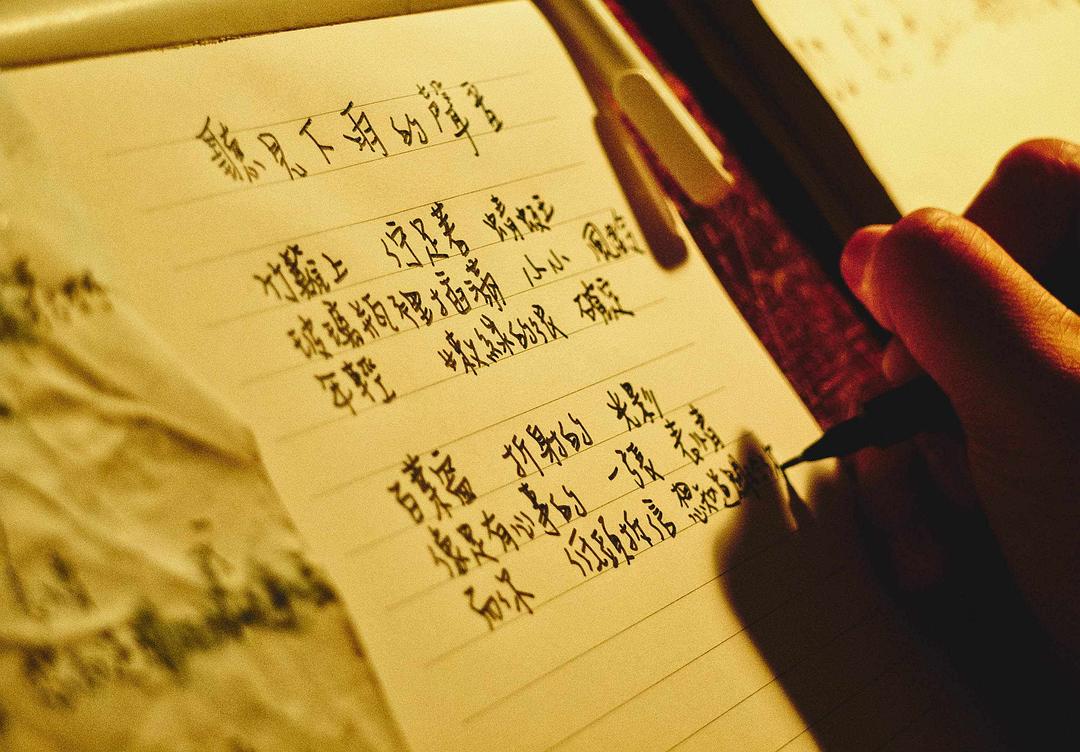 聽見下雨的聲音
竹籬上 佇足著 蜻蜓
玻璃瓶裡插滿 小小 風鈴
年輕 嫩綠的很 確定
百葉窗 折射的 光影
像是有心事的 一張 表情
而你 低頭拆信 想知道